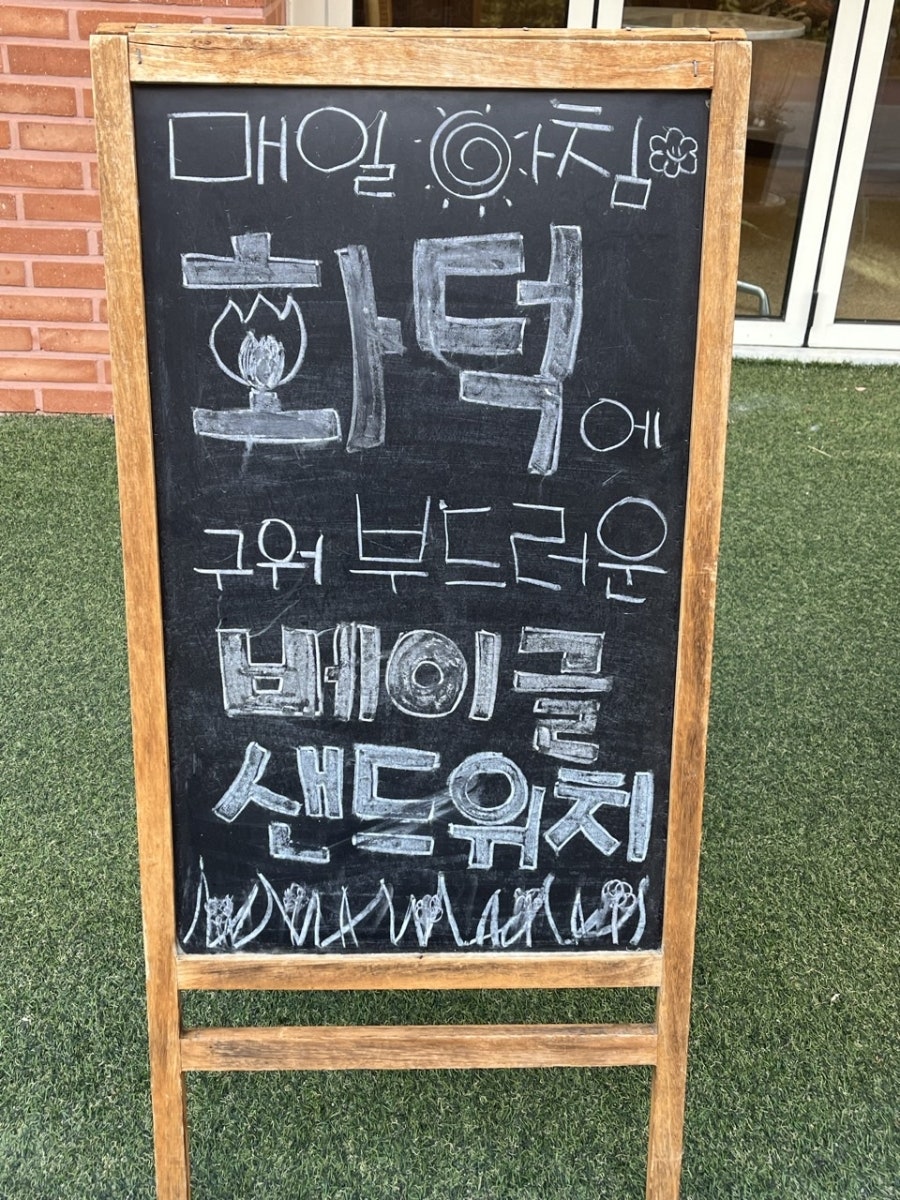 매일 아침
화덕에
구워 부드러운
베이글
샌드위치